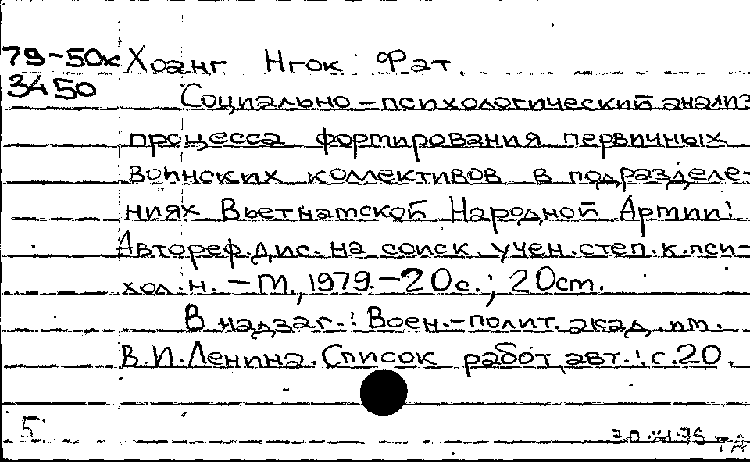 79-50к Хоанг Нгок Фат.
3450
Социально-психологический анализ
процесса формирования первичных
воинских коллективов в подразделе-
ниях Вьетнамской Народной Армии:
Автореф. дис. на соиск. учен. степ. к. пси-
хол. н. - М., 1979. - 20 с.; 20 см.
В надзаг.: Воен.-полит. акад. им.
В.И. Ленина. Список работ авт.: с. 20.
5